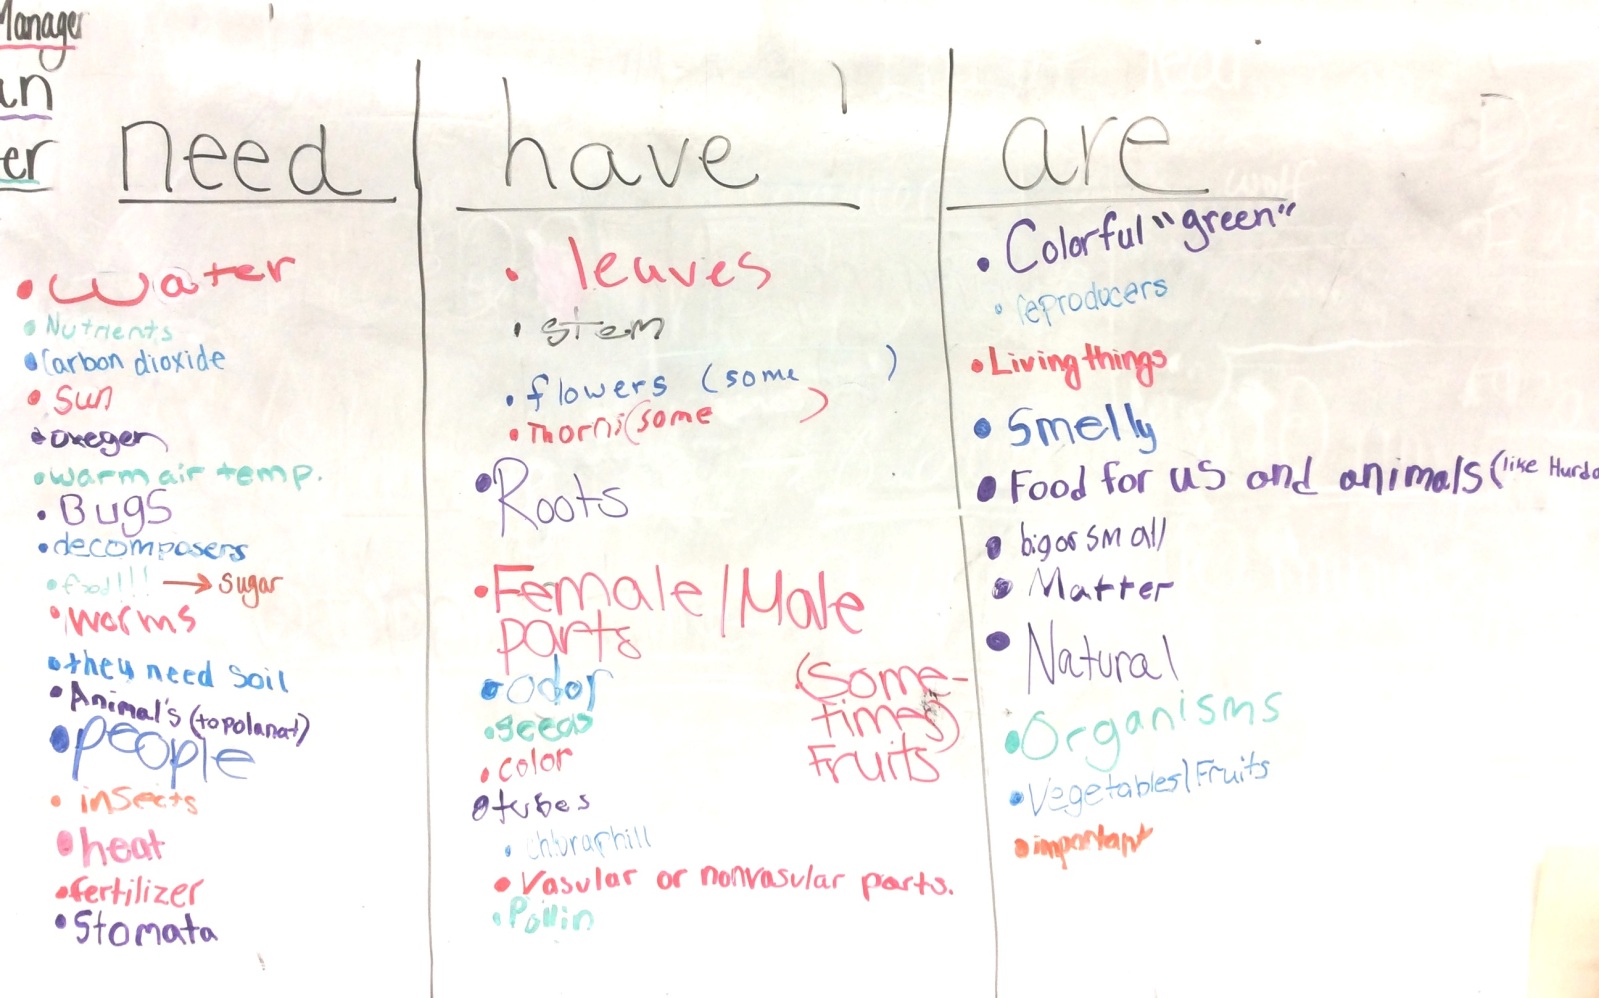 Manager
an
er
need
• Water
• Nutrients
• Carbon dioxide
• Sun
• oxegen
• warm air temp.
• Bugs
• decomposers
• food!!! → sugar
• worms
• they need Soil
• Animal's (to polanat)
• people
• insects
• heat
• fertilizer
• Stomata
have
• leaves
• stem
• flowers (some )
• Thorns (some )
• Roots
• Female/Male
parts
(Some-
times)
Fruits
• odor
• seeds
• color
• tubes
• chloraphill
• Vasular or nonvasular parts.
• Pollin
are
• Colorful "green"
• reproducers
• Living things
• Smelly
• Food for us and animals (like Hurdo
• big or small
• Matter
• Natural
• Organisms
• Vegetables/Fruits
• important